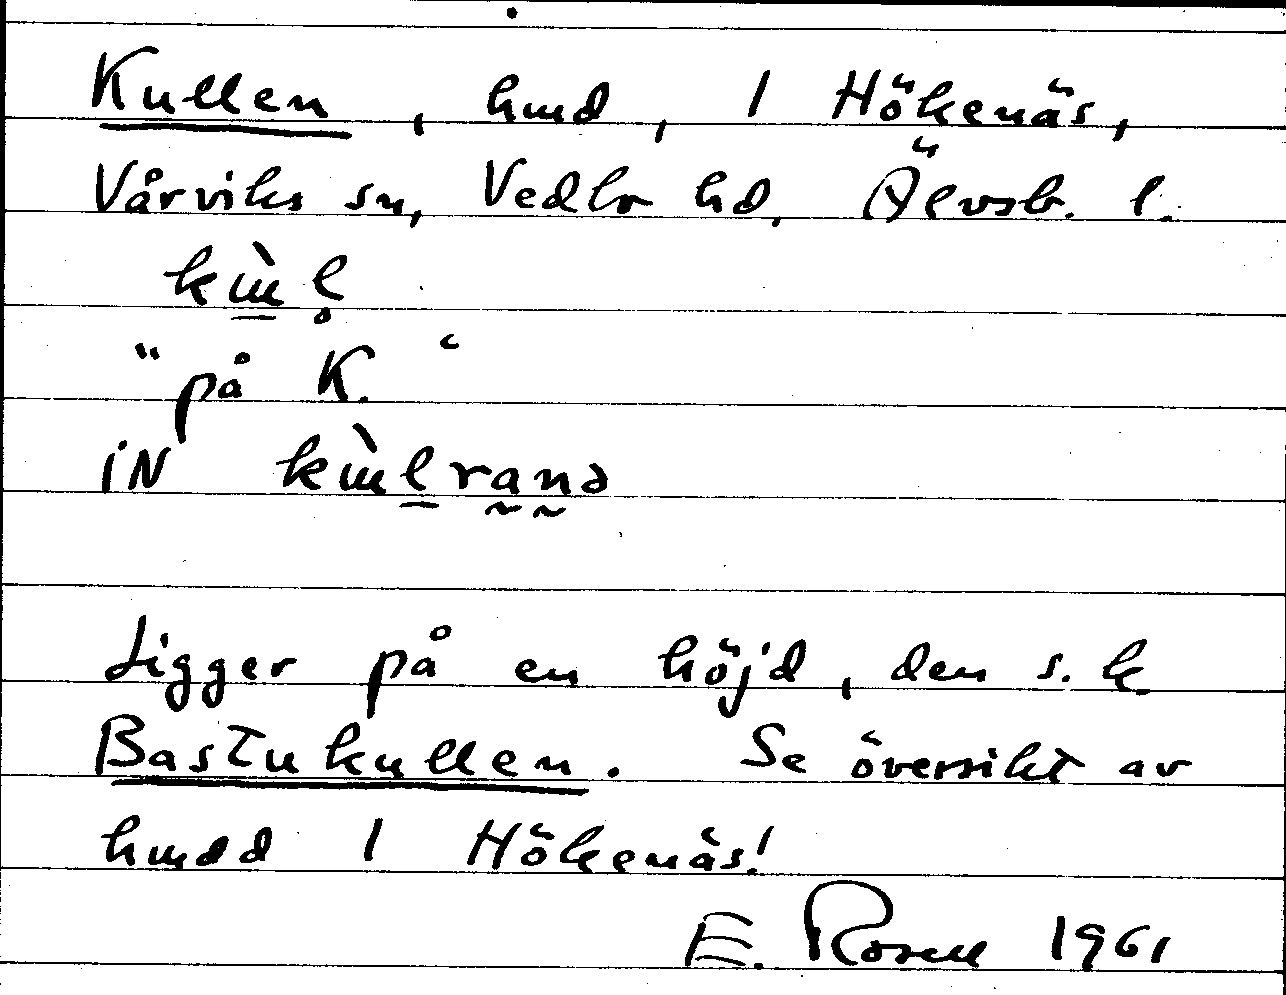 Kullen, hmd, 1 Hökenäs,
Vårviks sn, Vedbo hd, Älvsb. l.
"på K."
iN
Ligger på en höjd, den s. k.
Bastukullen. Se översikt av
hmdd 1 Hökenäs!
E. Rosell 1961